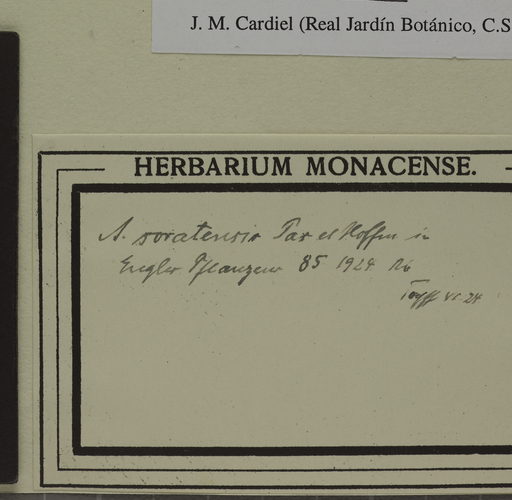 J. M. Cardiel (Real Jardín Botánico, C.S
HERBARIUM MONACENSE.
A. soratensis Pax et Hoffm in
Engler Pflanzenr 85 1924
VI 24